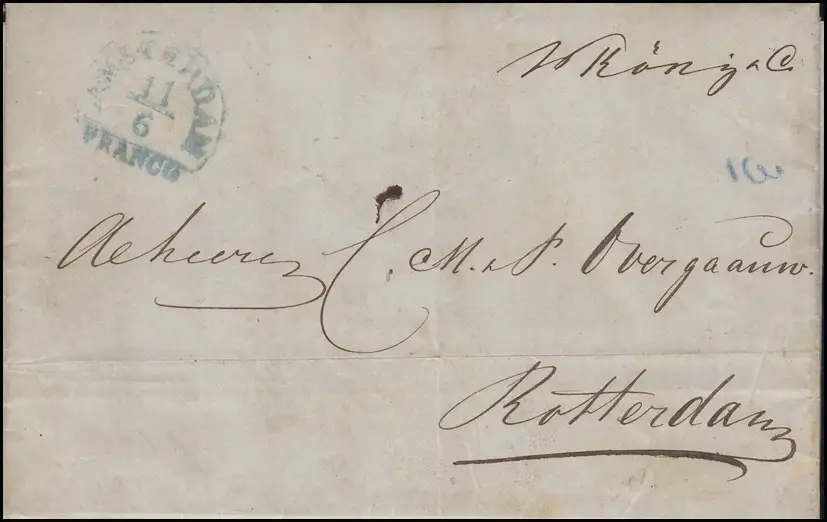 AMSTERDAM
11
6
FRANCO
König & Co
De heeren C. M. & P. Overgaauw.
Rotterdam